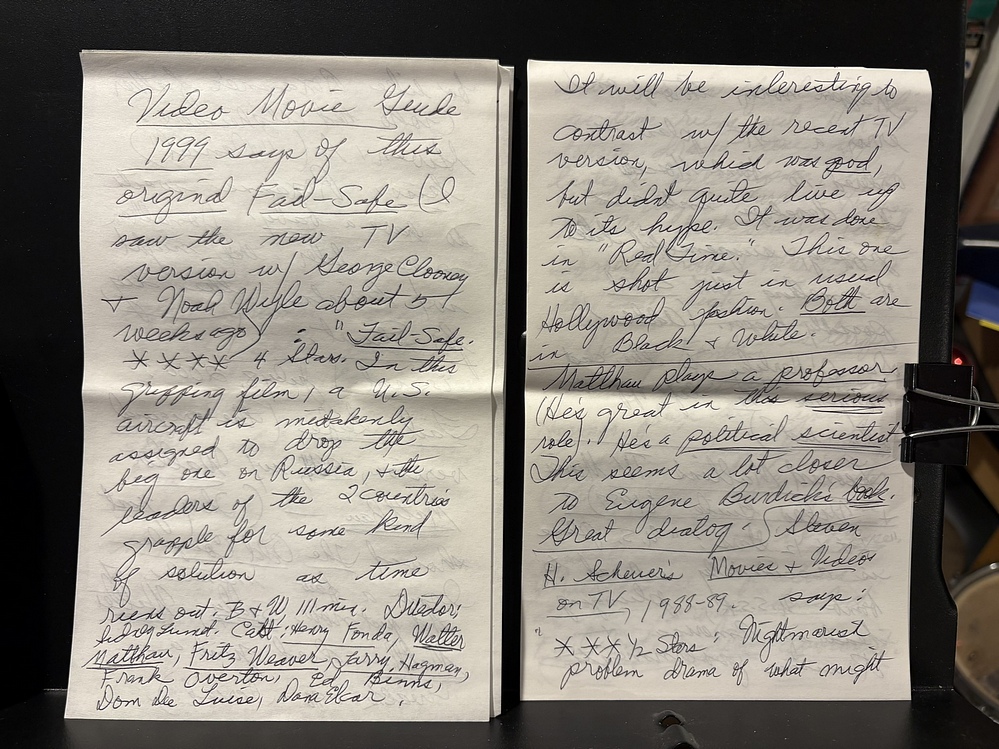 Video Movie Guide
1999 says of this
original Fail-Safe (I
saw the new TV
version w/ George Clooney
+ Noah Wyle about 5
weeks ago) : "Fail-Safe.
**** 4 Stars. In this
gripping film, a U.S.
aircraft is mistakenly
assigned to drop the
big one on Russia, & the
leaders of the 2 countries
grapple for some kind
of solution as time
runs out. B & W 111 min. Director:
Sidney Lumet. Cast: Henry Fonda, Walter
Matthau, Fritz Weaver, Larry Hagman,
Frank Overton, Ed Binns,
Dom De Luise, Dana Elcar.
It will be interesting to
contrast w/ the recent TV
version, which was good,
but didn't quite live up
to its hype. It was done
in "Real Time." This one
is shot just in usual
Hollywood fashion. Both are
in Black & White.
Matthau plays a professor
(He's great in this serious
role). He's a political scientist.
This seems a lot closer
to Eugene Burdick's book.
Great dialog. Steven
H. Scheuer's Movies & Videos
on TV, 1988-89. says:
"***1/2 Stars: Nightmarist
problem drama of what might